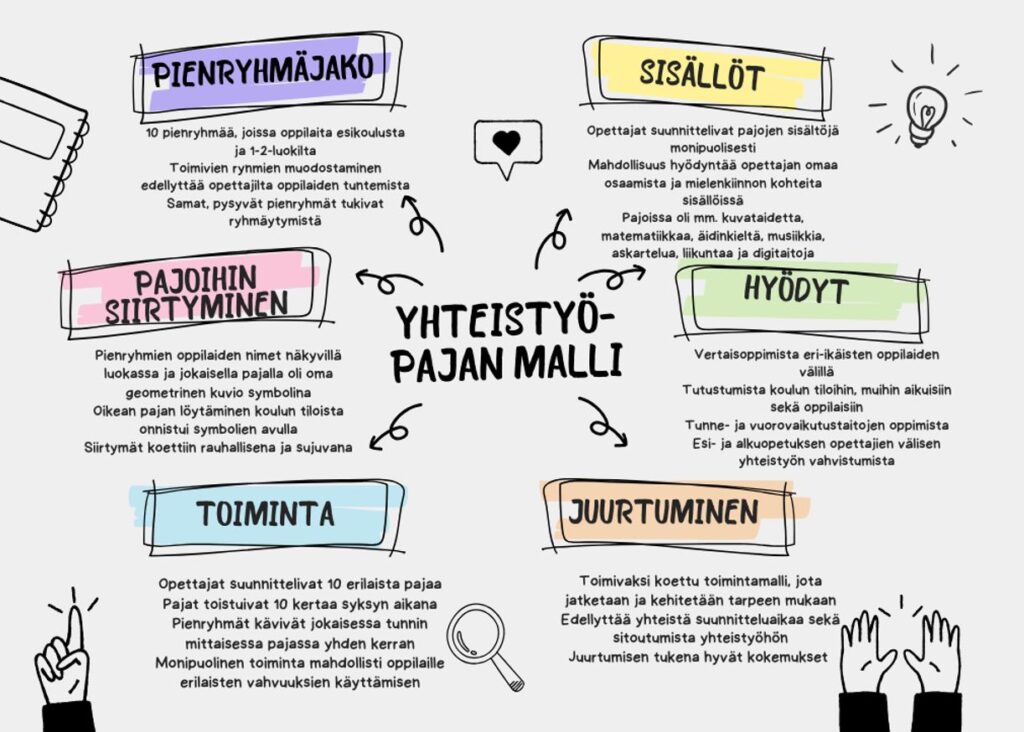 PIENRYHMÄJAKO
10 pienryhmää, joissa oppilaita esikoulusta
ja 1-2-luokilta
Toimivien rynmien muodostaminen
edellyttää opettajilta oppilaiden tuntemista
Samat, pysyvät pienryhmät tukivat
ryhmäytymistä
SISÄLLÖT
Opettajat suunnittelivat pajojen sisältöjä
monipuolisesti
Mahdollisuus hyödyntää opettajan omaa
osaamista ja mielenkiinnon kohteita
sisällöissä
Pajoissa oli mm. kuvataidetta,
matematiikkaa, äidinkieltä, musiikkia,
askartelua, liikuntaa ja digitaitoja
YHTEISTYÖ-
PAJAN MALLI
PAJOIHIN
SIIRTYMINEN
Pienryhmien oppilaiden nimet näkyvillä
luokassa ja jokaisella pajalla oli oma
geometrinen kuvio symbolina
Oikean pajan löytäminen koulun tiloista
onnistui symbolien avulla
Siirtymät koettiin rauhallisena ja sujuvana
HYÖDYT
Vertaisoppimista eri-ikäisten oppilaiden
välillä
Tutustumista koulun tiloihin, muihin aikuisiin
sekä oppilaisiin
Tunne- ja vuorovaikutustaitojen oppimista
Esi- ja alkuopetuksen opettajien välisen
yhteistyön vahvistumista
TOIMINTA
Opettajat suunnittelivat 10 erilaista pajaa
Pajat toistuivat 10 kertaa syksyn aikana
Pienryhmät kävivät jokaisessa tunnin
mittaisessa pajassa yhden kerran
Monipuolinen toiminta mahdollisti oppilaille
erilaisten vahvuuksien käyttämisen
JUURTUMINEN
Toimivaksi koettu toimintamalli, jota
jatketaan ja kehitetään tarpeen mukaan
Edellyttää yhteistä suunnitteluaikaa sekä
sitoutumista yhteistyöhön
Juurtumisen tukena hyvät kokemukset